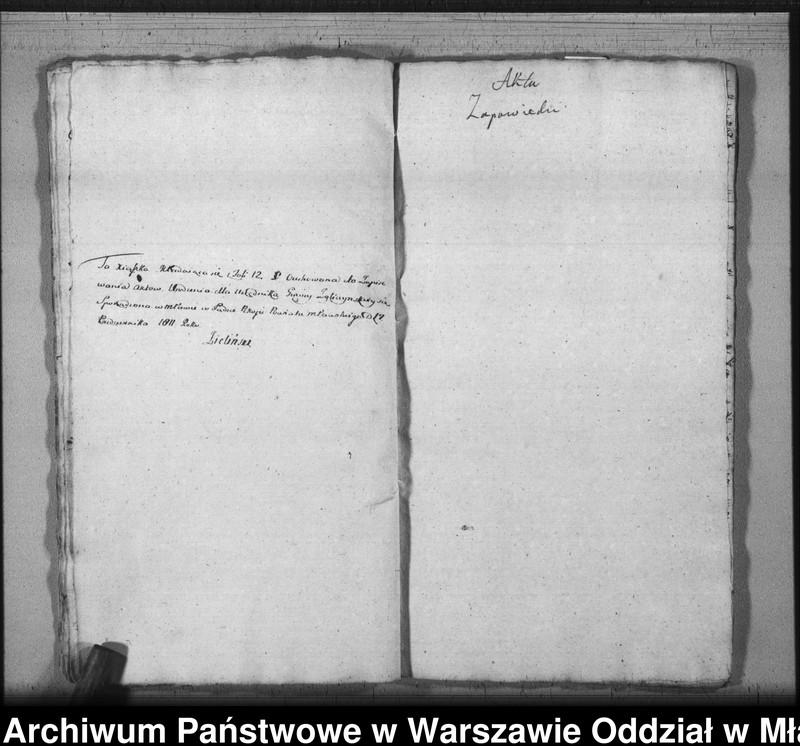 Ta xiąszka składaiąca się z Foli 12. Oznkowana do Zapisy
wania aktow Urodzenia dla Urzędnika Gminy
Sporządzona w Mławie w Sądzie Pokoju Powiatu Mławskiego D. 17
Października 1811 Roku
Zieliński
Akta
Zapowiedzi
Archiwum Państwowe w Warszawie Oddział w Mła